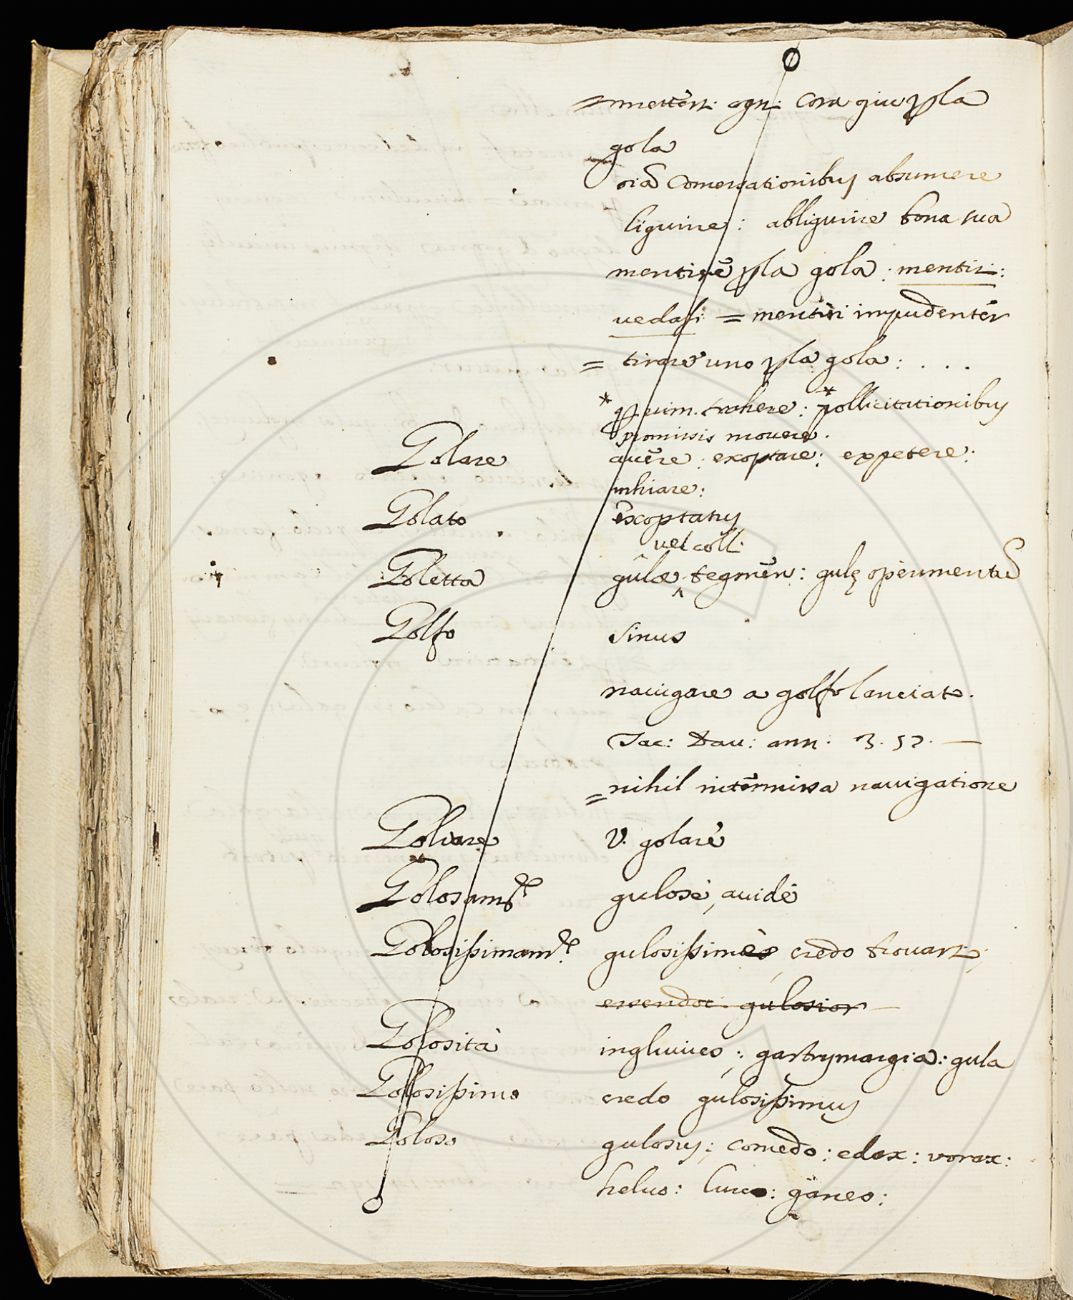 = metter: ogn: cosa giu p la
gola
oia comersationibus absumere
ligurire: abligurire bona sua
mentire p la gola: mentir:
vedasi = mentiri impudenter
= tirare uno p la gola: . . .
* quim. trahere: * pollicitationibus
promissis movere.
Golare avere: exoptare: expetere:
inhiare:
Golato exoptatus
vel colli
Goletta gulæ ‸ tegmen: gulę operimentũ
Golfo sinus
nauigare a golfo lanciato.
Tac: Dau: ann: 3. 52. —
= nihil intermissa nauigatione
Goliare V. golare
Golosam.te gulosè, auidè
Golosissimam.te gulosissimè, credo trouarsi;
essendoci gulosior
Golosità ingluuies; gastrymargia: gula
Golosissimo credo gulosissimus
Goloso gulosus; comedo: edax: vorax:
heluo: lurco: ganeo: